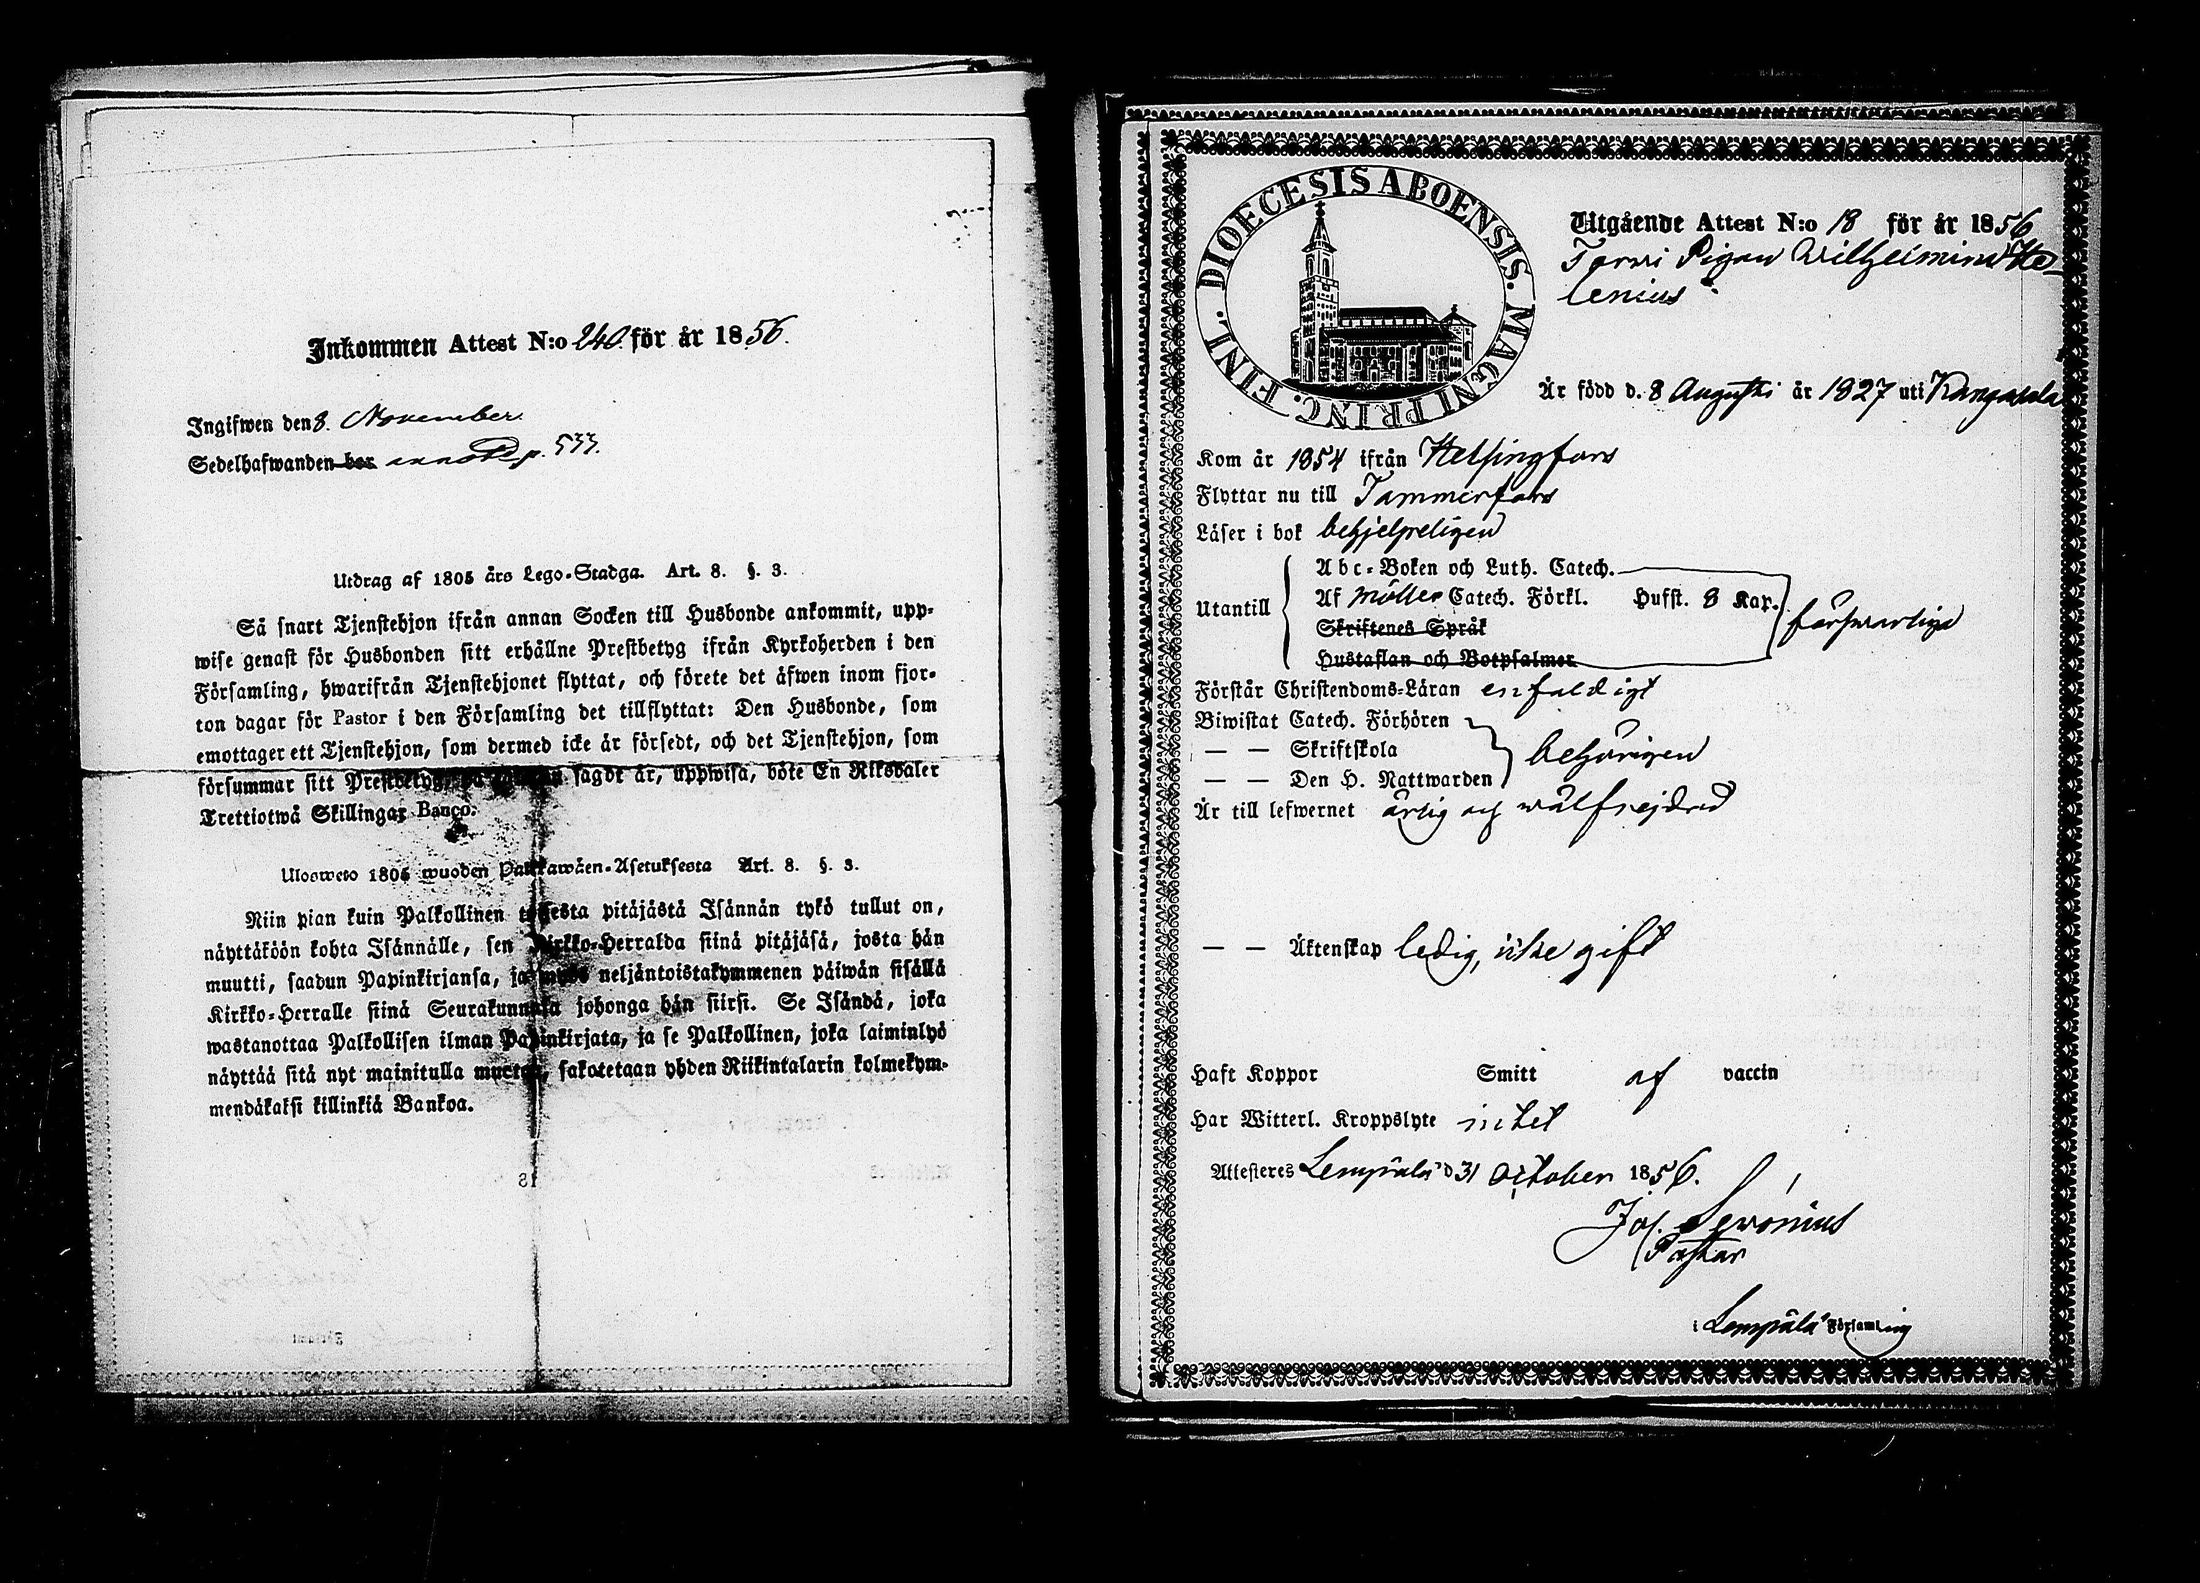 Inkommen Attest N:o 240. för år 1856.
Ingifwen den 8. November.
Sedelhafwanden bor annot. p. 533.
Utdrag af 1805 års Lego-Stadga. Art. 8. §. 3.
Så snart Tjenstehjon ifrån annan Socken till Husbonde ankommit, upp-
wise genast för Husbonden sitt erhållne Prestbetyg ifrån Kyrkoherden i den
Församling, hwarifrån Tjenstehjonet flyttat, och förete det äfwen inom fjor-
ton dagar för Pastor i den Församling det tillflyttat: Den Husbonde, som
emottager ett Tjenstehjon, som dermed icke är försedt, och det Tjenstehjon, som
försummar sitt Prestbetyg, sagdt är, uppwisa, böte En Riksdaler
Trettiotwå Skillingar Banco.
Ulosweto 1805 wuoden Palkkawäen-Asetuksesta Art. 8. §. 3.
Niin pian kuin Palkollinen toisesta pitäjästä Isännän tykö tullut on,
näyttäköön kohta Isännälle, sen Kirkko-Herralda siinä pitäjäsä, josta hän
muutti, saadun Papinkirjansa, ja myös neljäntoistakymmenen päiwän sisällä
Kirkko-Herralle siinä Seurakunnasa johonga hän siirsi. Se Isändä, joka
wastanottaa Palkollisen ilman Papinkirjata, ja se Palkollinen, joka laiminlyö
näyttää sitä nyt mainitulla muotoa, sakotetaan yhden Riikintalarin kolmekym-
mendäkaksi killinkiä Bankoa.
DIOECESIS ABOENSIS. MAGNI PRINC. FINL.
Utgående Attest N:o 18 för år 1856
Torni Pigan Wilhelmina He-
lenius
Är född d. 8 Augusti år 1827 uti Kangasala
Kom år 1854 ifrån Helsingfors
Flyttar nu till Tammerfors
Läser i bok behjelpeligen
Utantill
Abc-Boken och Luth. Catech.
Af Möller Catech. Förkl. Hufst. 8 Kap.
Skriftenes Språk
Hustaflan och Botpsalmer
försvarliga
Förstår Christendoms-Läran enfaldigt
Biwistat Catech. Förhören
— — Skriftskola
— — Den H. Nattwarden
behörigen
Är till lefwernet ärlig och wälfrejdad
— — Äktenskap ledig, icke gift
Haft Koppor Smitt af vaccin
Har Witterl. Kroppslyte intet
Attesteras Lempälä d 31 October 1856.
Jos. Serónius
Pastor
i Lempälä Församling